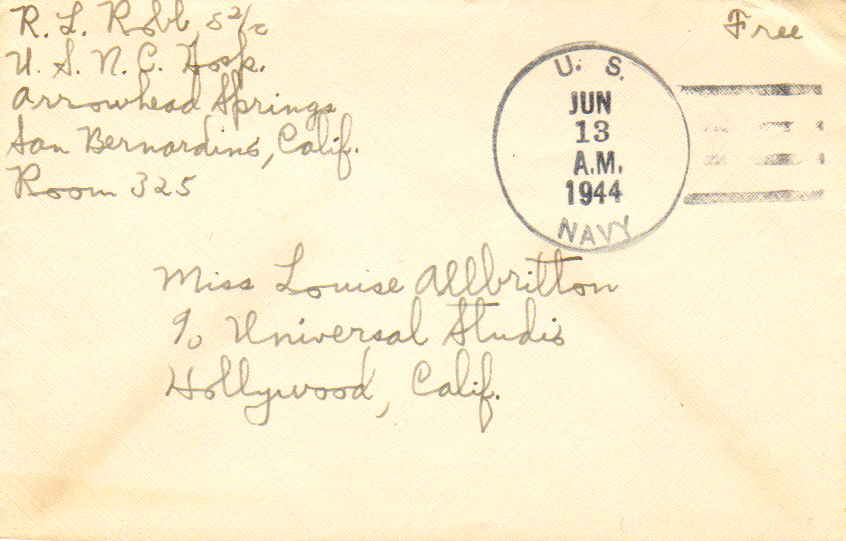 R. L. Robb, S 2/c
U. S. N. C. Hosp.
Arrowhead Springs
San Bernardino, Calif.
Room 325
Free
U. S.
JUN
13
A.M.
1944
NAVY
Miss Louise Allbritton
℅ Universal Studio
Hollywood, Calif.